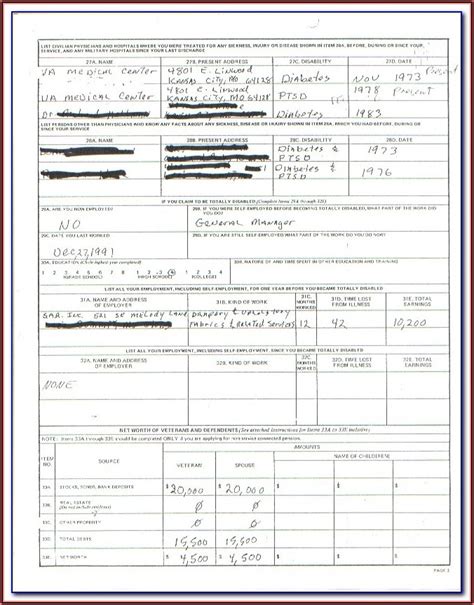 LIST CIVILIAN PHYSICIANS AND HOSPITALS WHERE YOU WERE TREATED FOR ANY SICKNESS, INJURY OR DISEASE SHOWN IN ITEM 26A, BEFORE, DURING OR SINCE YOUR
SERVICE, AND ANY MILITARY HOSPITALS SINCE YOUR LAST DISCHARGE
27A. NAME 27B. PRESENT ADDRESS 27C. DISABILITY 27D. DATE
VA Medical Center 4801 E. Linwood Kansas City, MO 64128 Diabetes Nov 1973 Present
VA Medical Center 4801 E. Linwood Kansas City, MO 64128 PTSD 1978 Present
Dr. Diabetes 1983
LIST PERSONS OTHER THAN PHYSICIANS WHO KNOW ANY FACTS ABOUT ANY SICKNESS, DISEASE OR INJURY SHOWN IN ITEM 26A, WHICH YOU HAD BEFORE, DURING OR
SINCE YOUR SERVICE
28A. NAME 28B. PRESENT ADDRESS 28C. DISABILITY 28D. DATE
Diabetes & PTSD 1973
Diabetes & PTSD 1976
IF YOU CLAIM TO BE TOTALLY DISABLED (Complete Items 29A through 32E)
29A. ARE YOU NOW EMPLOYED 29B. IF YOU WERE SELF-EMPLOYED BEFORE BECOMING TOTALLY DISABLED, WHAT PART OF THE WORK DID
YOU DO?
NO General Manager
29C. DATE YOU LAST WORKED 29D. IF YOU ARE STILL SELF-EMPLOYED WHAT PART OF THE WORK DO YOU DO NOW?
Dec 27, 1991
30A. EDUCATION 30B. NATURE OF AND TIME SPENT IN OTHER EDUCATION AND TRAINING
1 2 3 4 5 6 7 8 1 2 3 4 1 2 3 4
LIST ALL YOUR EMPLOYMENT, INCLUDING SELF-EMPLOYMENT, FOR ONE YEAR BEFORE YOU BECAME TOTALLY DISABLED
31A. NAME AND ADDRESS OF EMPLOYER 31B. KIND OF WORK 31C. MONTHS WORKED 31D. TIME LOST FROM ILLNESS 31E. TOTAL EARNINGS
SE Melody Lane Drapery & Upholstery
Fabrics & Related Services 12 42 10,200
LIST ALL YOUR EMPLOYMENT, INCLUDING SELF-EMPLOYMENT, SINCE YOU BECAME TOTALLY DISABLED
32A. NAME AND ADDRESS OF EMPLOYER 32B. KIND OF WORK 32C. MONTHS WORKED 32D. TIME LOST FROM ILLNESS 32E. TOTAL EARNINGS
NONE
NET WORTH OF VETERANS AND DEPENDENTS (See attached Instructions for Items 33A to 33E inclusive)
NOTE: Items 33A through 33E should be completed ONLY if you are applying for non service connected pension.
ITEM NO. SOURCE AMOUNTS
VETERAN SPOUSE NAME OF CHILD(REN)
33A. STOCKS, BONDS, BANK DEPOSITS $20,000 $20,000
33B. REAL ESTATE (Do not include your home) Ø Ø
33C. OTHER PROPERTY Ø Ø
33D. TOTAL DEBTS 15,500 15,500
33E. NET WORTH $4,500 $4,500
PAGE 3